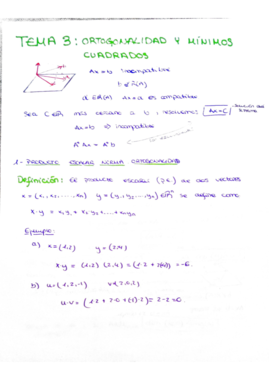 TEMA 3: ORTOGONALIDAD Y MÍNIMOS
CUADRADOS
Ax = b incompatible
b ∉ R(A)
Ax = c es compatible
Sea C ∈ R más cercano a b, resolvemos Ax = c
Ax = b incompatible
AᵗAx = Aᵗb
1- PRODUCTO ESCALAR NORMA ORTOGONALIDAD
Definición: El producto escalar (P.E) de dos vectores
x = (x₁, x₂, ..., xₙ) y = (y₁, y₂, ..., yₙ) ∈ Rⁿ se define como
x·y = x₁y₁ + x₂y₂ + ... + xₙyₙ
Ejemplo:
a) x = (1,2) y = (2,-4)
x·y = (1,2) (2,-4) = (1·2 + 2(-4)) = -6.
b) u = (1,2,-1) v = (2,0,2)
u·v = (1·2 + 2·0 + (-1)·2) = 2-2 = 0.